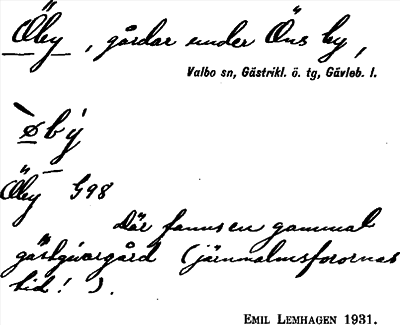 Öby, gårdar under Öns by,
Valbo sn, Gästrikl. ö. tg, Gävleb. l.
`øbý
Öby G98
Där fanns en gammal
gästgivargård (järnmalmsforornas
tid!).
EMIL LEMHAGEN 1931.